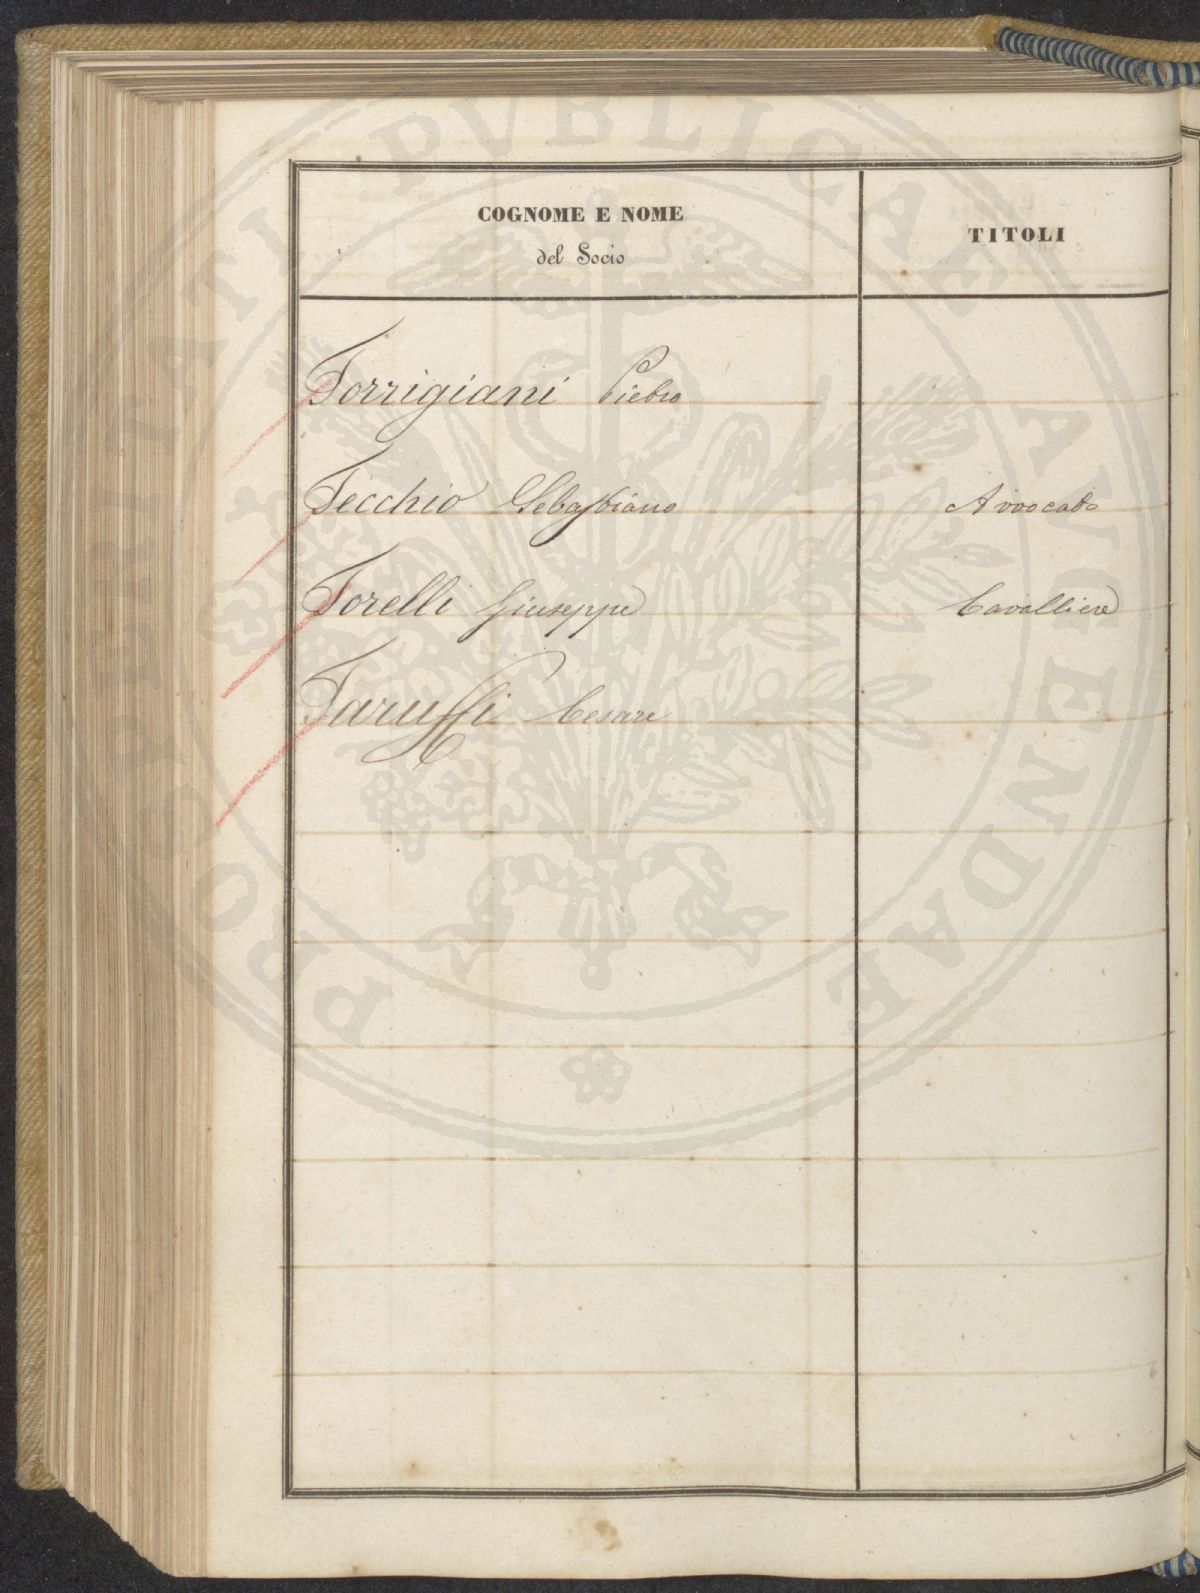 COGNOME E NOME
del Socio
TITOLI
Torrigiani Pietro
Tecchio Sebastiano Avvocato
Torelli Giuseppe Cavalliere
Taruffi Cesare
PROSPERITATI PVBLICAE AVGENDAE